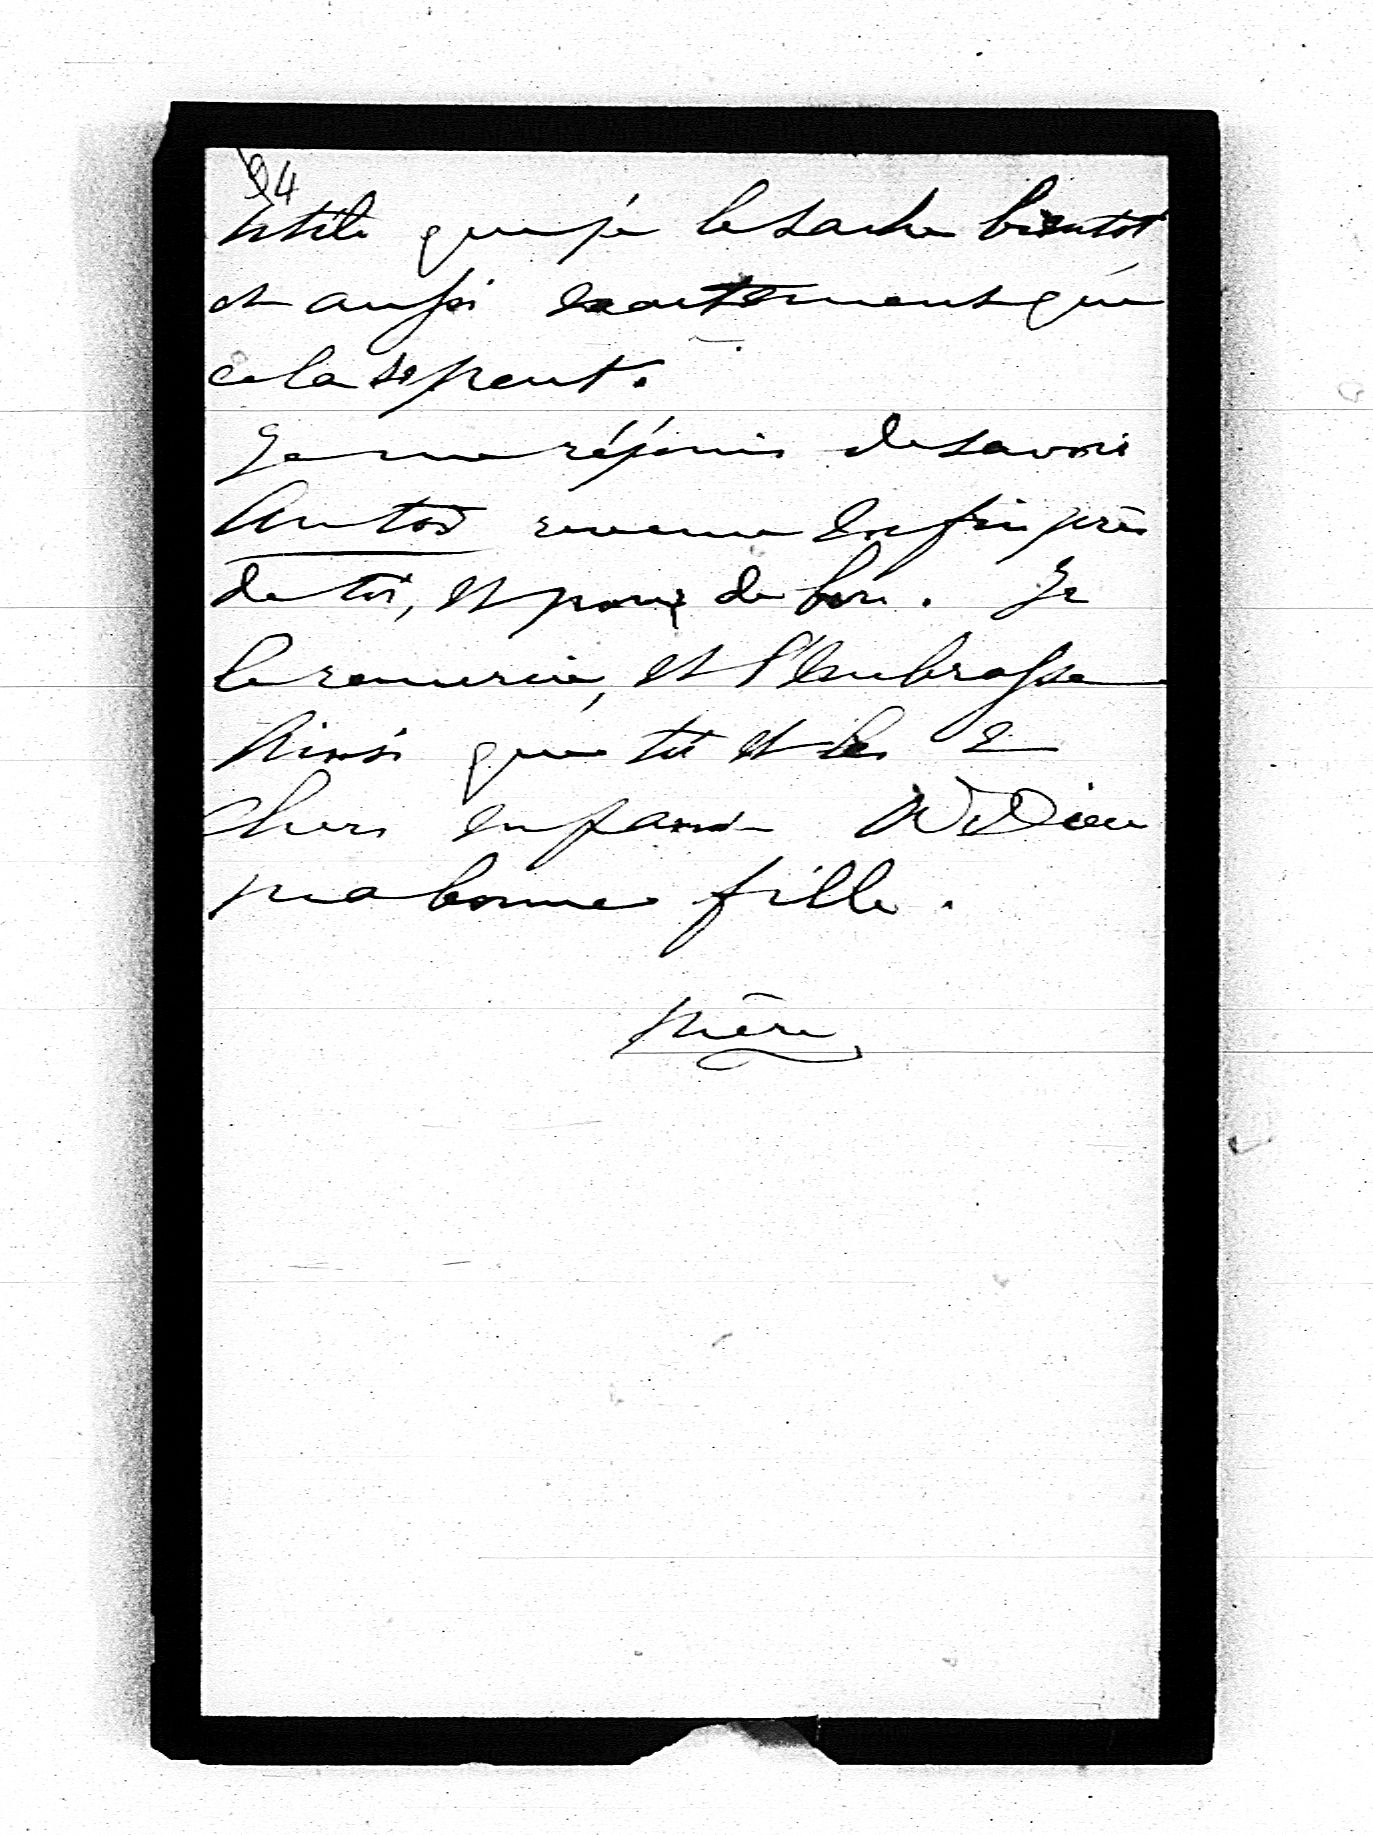 94
utile que je le sache bientôt
et aussi exactement que
cela se peut.
Je me réjouis de savoir
Antoi revenu enfin près
de toi, et pour de bon. Je
le remercie, et l'embrasse
Ainsi que toi et les 2
chers enfants A Dieu
ma bonne fille.
Mère